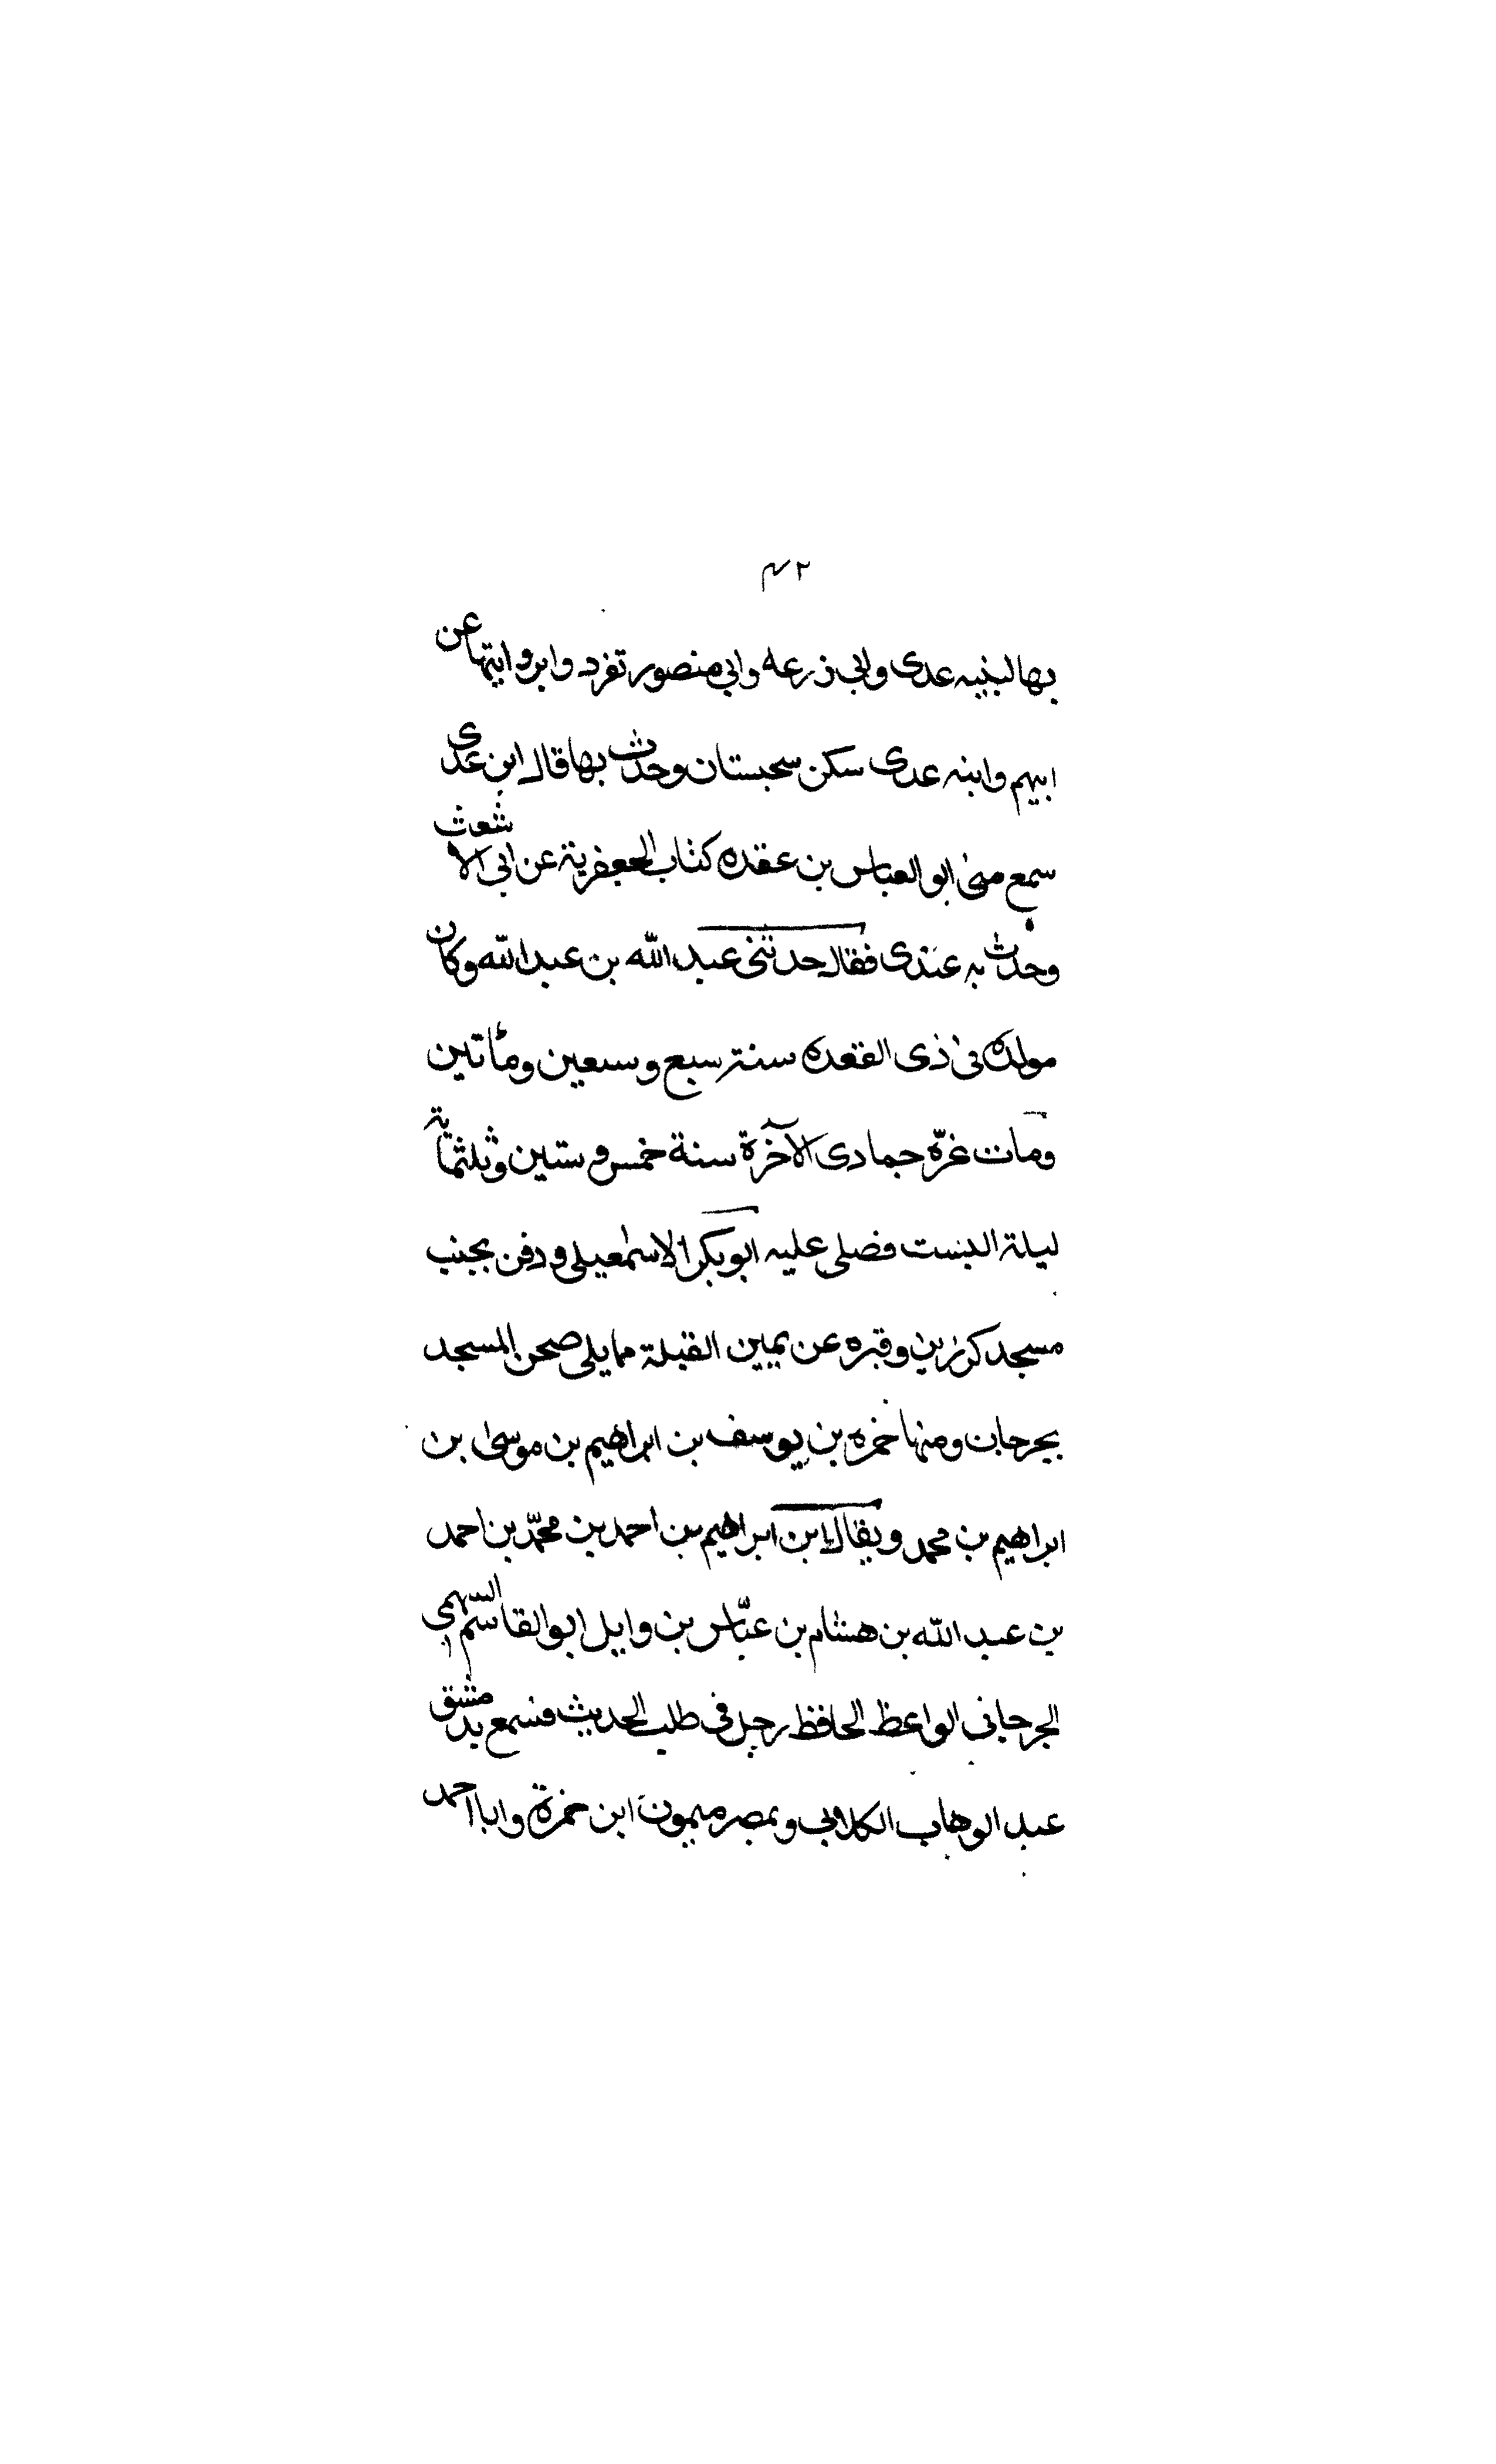 ٢٣
بها لبنيه عدى وابى زرعه وابى منصور تفرد وابروايتها عن
ابيهم وابنه عدى سكن سجستان وحدث بها قال ابن عدى
سمع منى ابو العباس بن عقده كتاب الجعفرية عن ابى الاشعث
وحدث به عندى فقال حدثنى عبد الله بن عبد الله وكان
مولده فى ذى القعده سنة سبع وسبعين ومأتين
ومات غرّه جمادى الآخرة سنة خمس وستين وثلثماية
ليلة السبت فصلى عليه ابو بكر الاسمعيلى ودفن بجنب
مسجد كرزين وقبره عن يمين القبلة مما يلى صحن المسجد
بجرجان ومنها حمزه بن يوسف بن ابراهيم بن موسى بن
ابراهيم بن محمد ويقال ابن ابراهيم بن احمد بن محمّد بن احمد
بن عبد الله بن هشام بن عبّاس بن وايل ابو القاسم السهمى
الجرجانى الواعظ الحافظ رحل فى طلب الحديث فسمع بدمشق
عبد الوهاب الكلابى وبمصر ميمون ابن حمزة وابا احمد